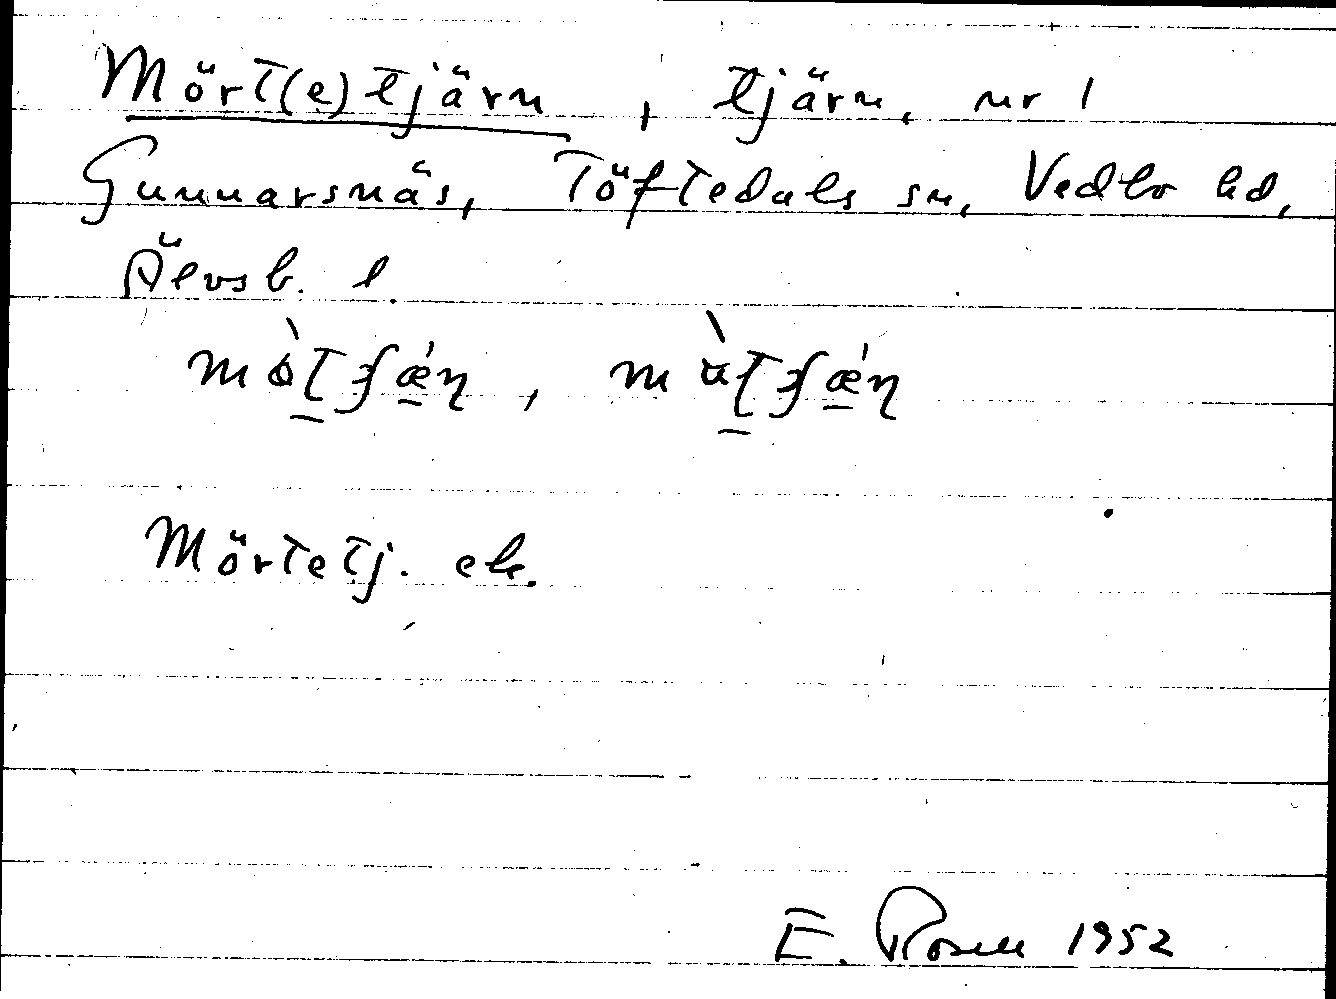 Mört(e)tjärn, tjärn, nr 1
Gunnarsnäs, Töftedals sn, Vedbo hd,
Älvsb. l.
Mörtetj. ek.
E. Rosell 1952